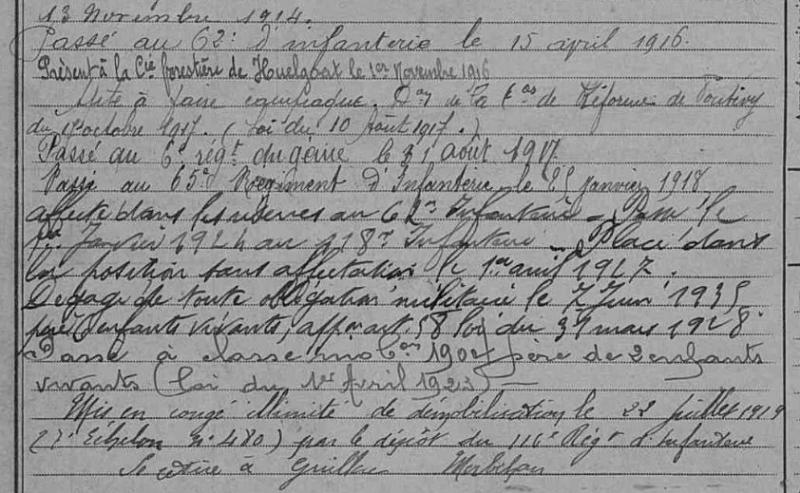 13 Novembre 1914.
Passé au 62e d'infanterie le 15 avril 1916.
Présent à la Cie forestière de Huelgoat le 1er Novembre 1916
Apte à faire campagne. Don de la Con de Réforme de Pontivy
du 1er octobre 1917. (Loi du 10 Août 1917.)
Passé au 6e régt du génie le 31 août 1917
Passé au 65e Régiment d'Infanterie le 25 janvier 1918
affecté dans les réserves au 62e Infanterie – Passé le
1er Janvier 1924 au 118e Infanterie – Placé dans
la position sans affectation le 1er avril 1927.
Dégagé de toute obligation militaire le 7 Juin 1935
père enfants vivants, appon art. 58 loi du 31 mars 1928
Passé à classe mob père de 2 enfants
vivants (loi du 1er Avril 1923) –
Mis en congé illimité de démobilisation le 22 juillet 1919
(Echelon No 480) par le dépôt du 116e Régt d'Infanterie
Se retire à Morbihan